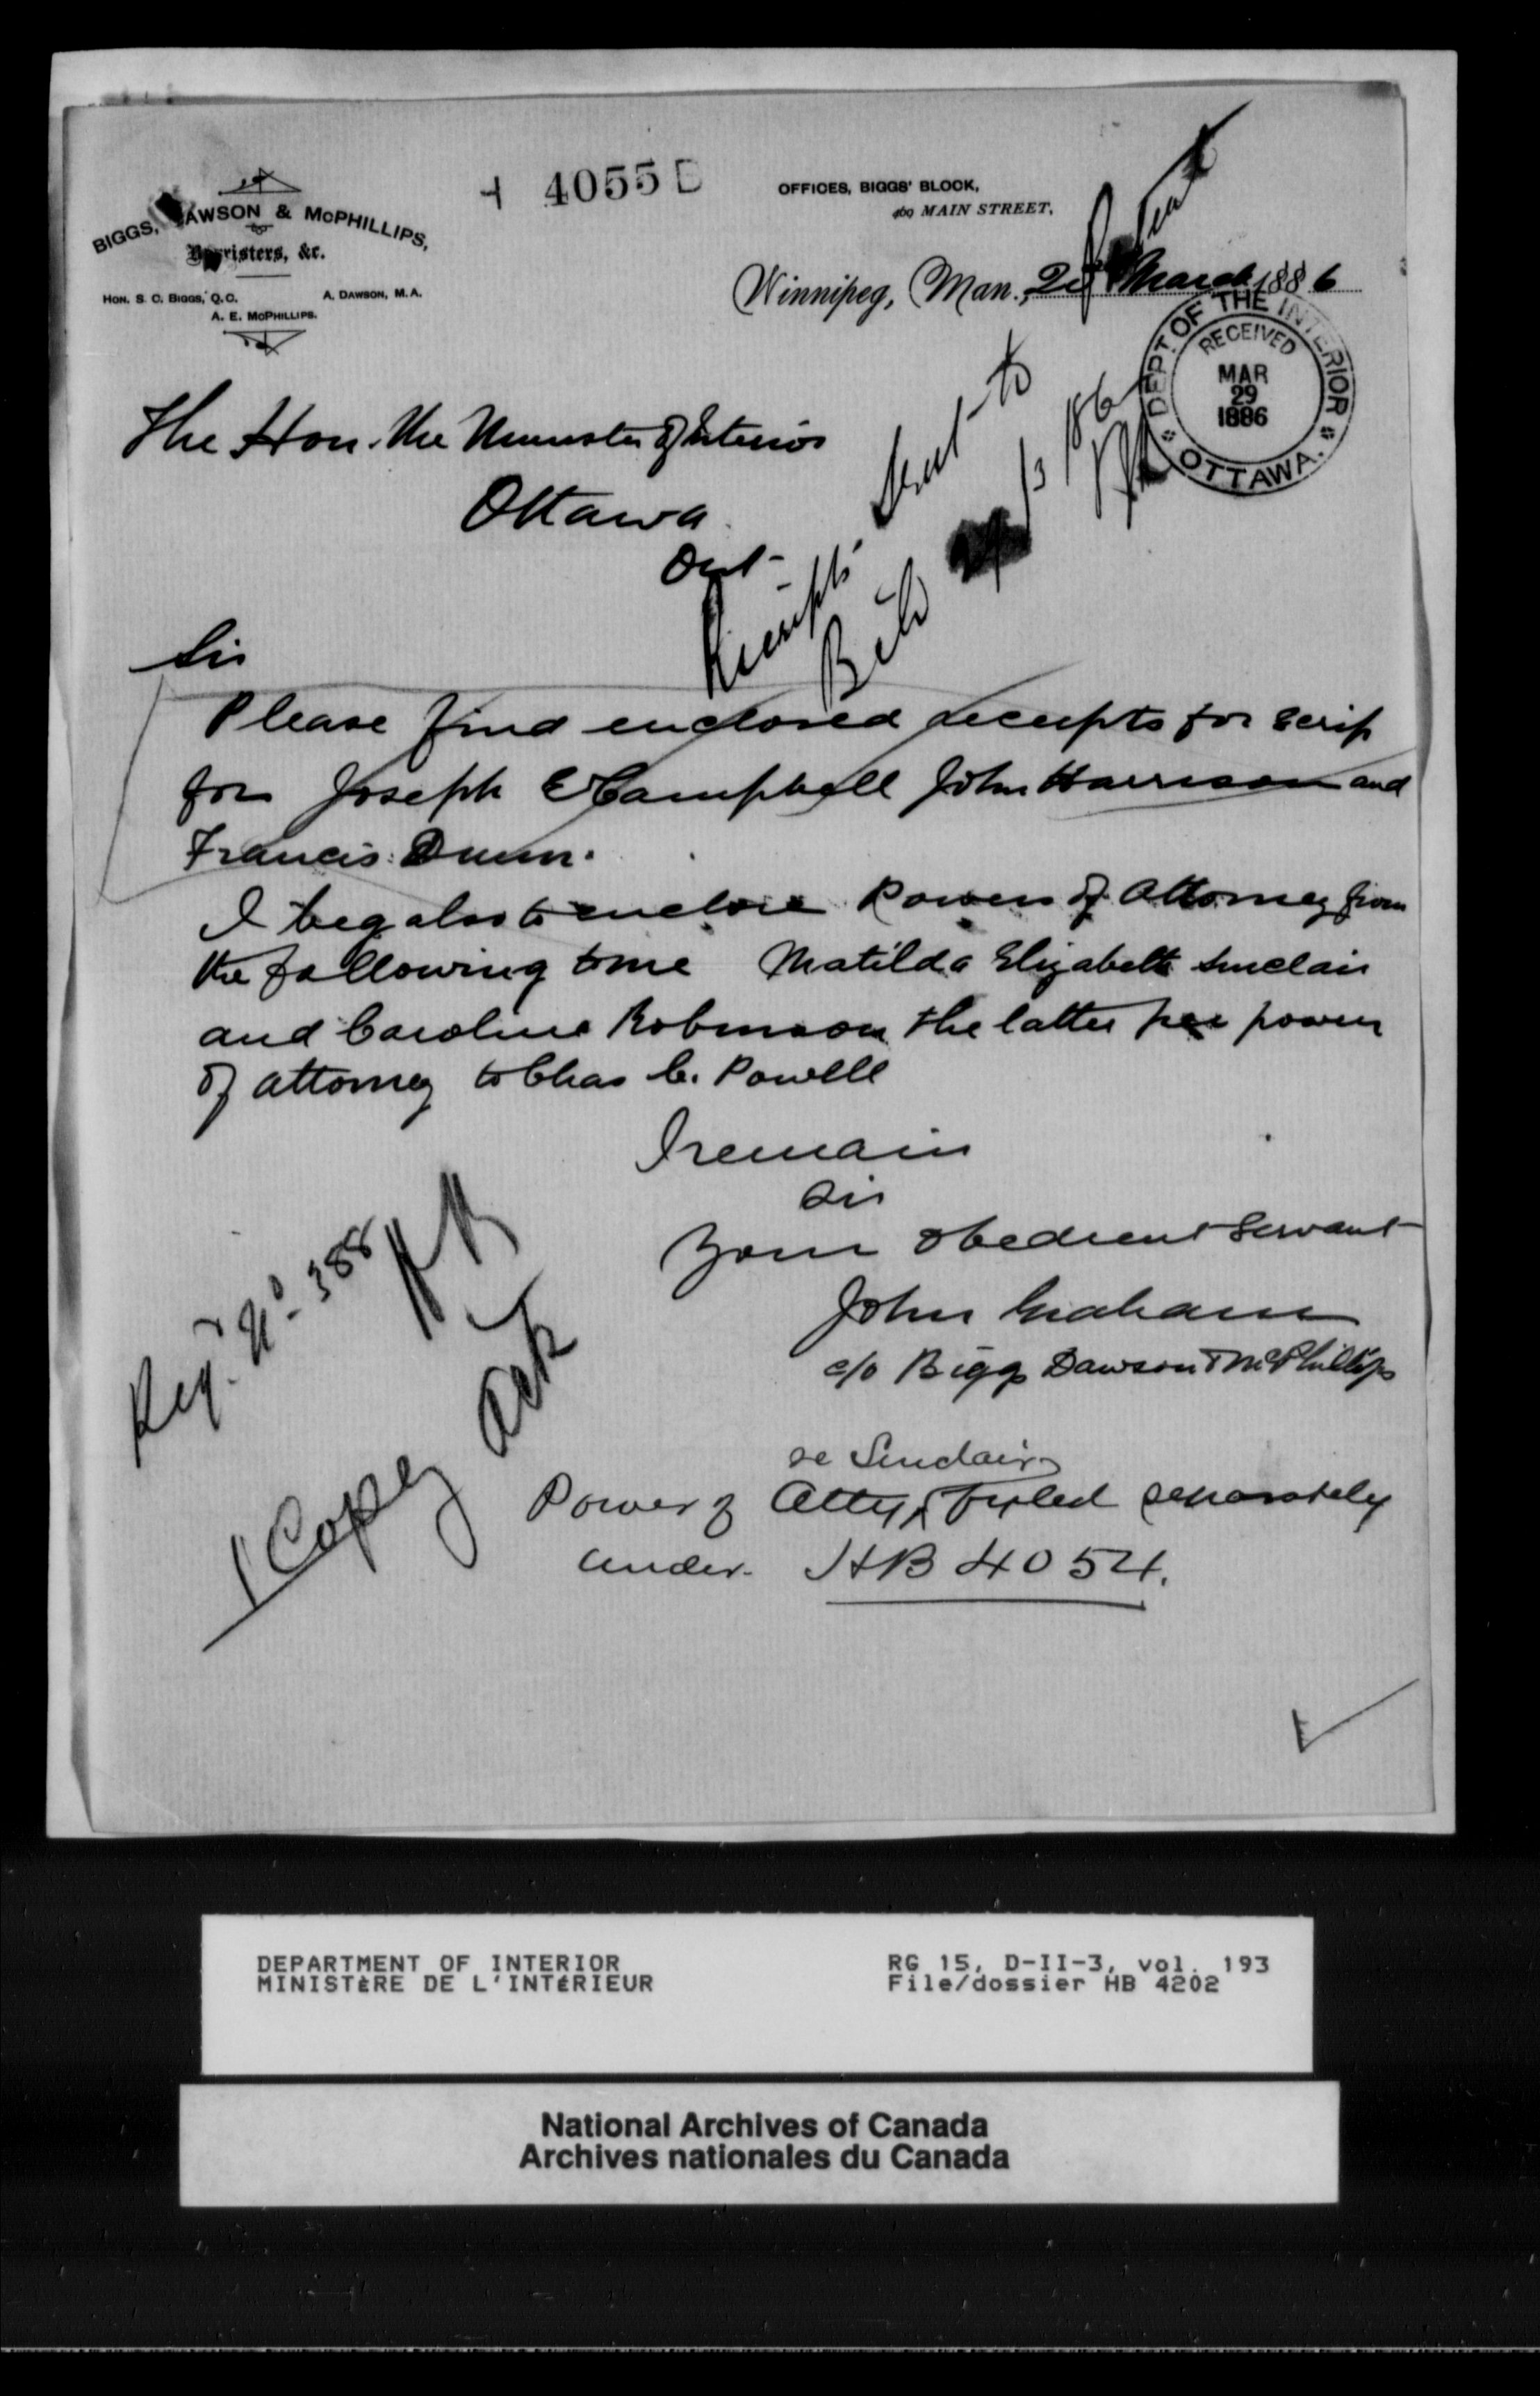 4055
BIGGS, DAWSON & McPHILLIPS,
Barristers, &c.
HON. S. C. BIGGS, Q.C. A. DAWSON, M.A.
A. E. McPHILLIPS.
OFFICES, BIGGS' BLOCK,
469 MAIN STREET,
Winnipeg, Man., March 1886
DEPT. OF THE INTERIOR
RECEIVED
MAR
29
1886
OTTAWA.
The Hon. the Minister of Interior
Ottawa
Ont-
Receipts sent to
/3/86
Sir
Please find enclosed receipts for scrip
for Joseph E Campbell John Harrison and
Francis Dunn.
I beg also to enclose Powers of Attorney from
the following to me Matilda Elizabeth Sinclair
and Caroline Robinson the latter per power
of attorney to Chas C. Powell
I remain
Sir
Your obedient Servant
John Graham
c/o Biggs Dawson & McPhillips
Reg. No. 388
Ack
1 Copy
re Sinclair
Power of Atty fyled separately
under HB 4054.
DEPARTMENT OF INTERIOR
MINISTÈRE DE L'INTÉRIEUR
RG 15, D-II-3, vol. 193
File/dossier HB 4202
National Archives of Canada
Archives nationales du Canada